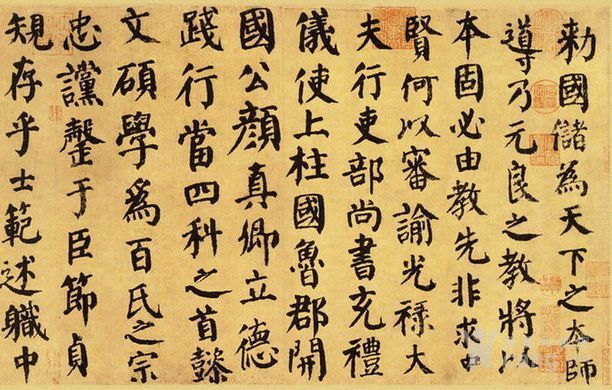 勅國儲為天下之本師
導乃元良之教將以
本固必由教先非求
賢何以審諭光祿大
夫行吏部尚書充禮
儀使上柱國魯郡開
國公顏真卿立德
踐行當四科之首懿
文碩學為百氏之宗
忠讜罄于臣節貞
規存乎士範述職中